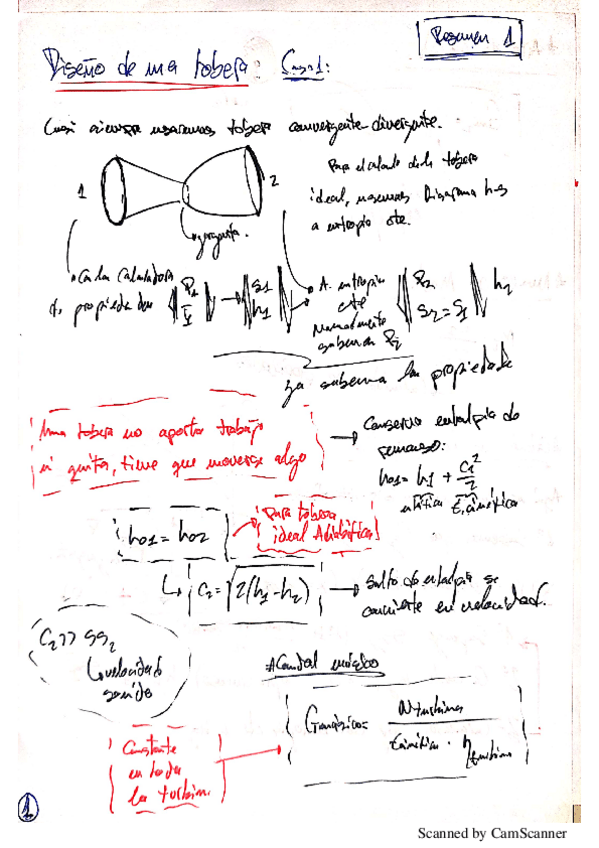 Resumen 1
Diseño de una tobera: Caso 1:
Casi siempre usaremos tobera convergente-divergente.
1
2
garganta.
Para el calculo de la tobera
ideal, usaremos Diagrama h-s
a entropia cte.
Con la calculadora
de propiedades
P1
T1
→
s1
h1
A entropia
cte
Normalmente
sabemos P2
P2
s2=s1
h2
ya sabemos las propiedades
Una tobera no aporta trabajo
ni quita, tiene que moverse algo
→ Conserva entalpia de
remanso:
h01 = h1 + c1²/2
E. cinética
h01 = h02
Para tobera
ideal Adiabática
c2 = √2(h1-h2)
→ Salto de entalpia se
convierte en velocidad.
C2 >> SS2
velocidad
sonido
A Caudal másico
Constante
en toda
la turbina.
1
Scanned by CamScanner